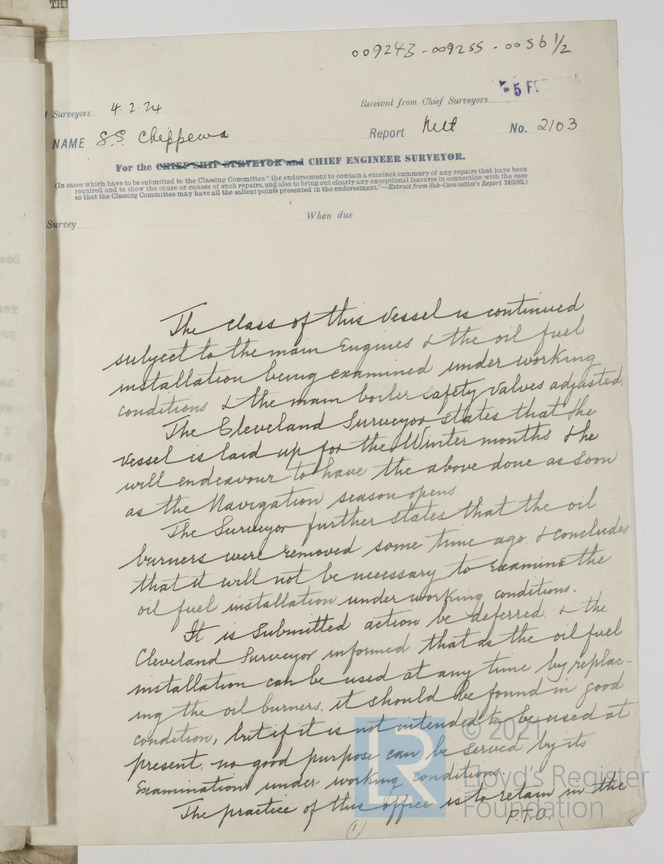 TH
009243-009255-0056 1/2
Surveyors 4.2.24 Received from Chief Surveyors 5 FEB
NAME S.S. Chippewa Report No. 2103
For the CHIEF SHIP SURVEYOR and CHIEF ENGINEER SURVEYOR.
(In cases which have to be submitted to the Classing Committee "the endorsement to contain a succinct summary of any repairs that have been
required and to show the cause or causes of such repairs, and also to bring out clearly any exceptional features in connection with the case
so that the Classing Committee may have all the salient points presented in the endorsement."—Extract from Sub-Committee's Report 24/5/02.)
Survey When due
The class of this vessel is continued
subject to the main Engines & the oil fuel
installation being examined under working
conditions & the main boiler safety valves adjusted.
The Cleveland Surveyor states that the
vessel is laid up for the Winter months & he
will endeavour to have the above done as soon
as the Navigation season opens.
The Surveyor further states that the oil
burners were removed some time ago & concludes
that it will not be necessary to Examine the
oil fuel installation under working conditions.
It is submitted action be deferred & the
Cleveland Surveyor informed that as the oil fuel
installation can be used at any time by replac-
ing the oil burners, it should be found in good
condition, but if it is not intended to be used at
present, no good purpose can be served by its
Examination under working conditions.
The practice of this office is to retain in the
P.T.O.
(1)
© 2021
LR
Lloyd's Register
Foundation